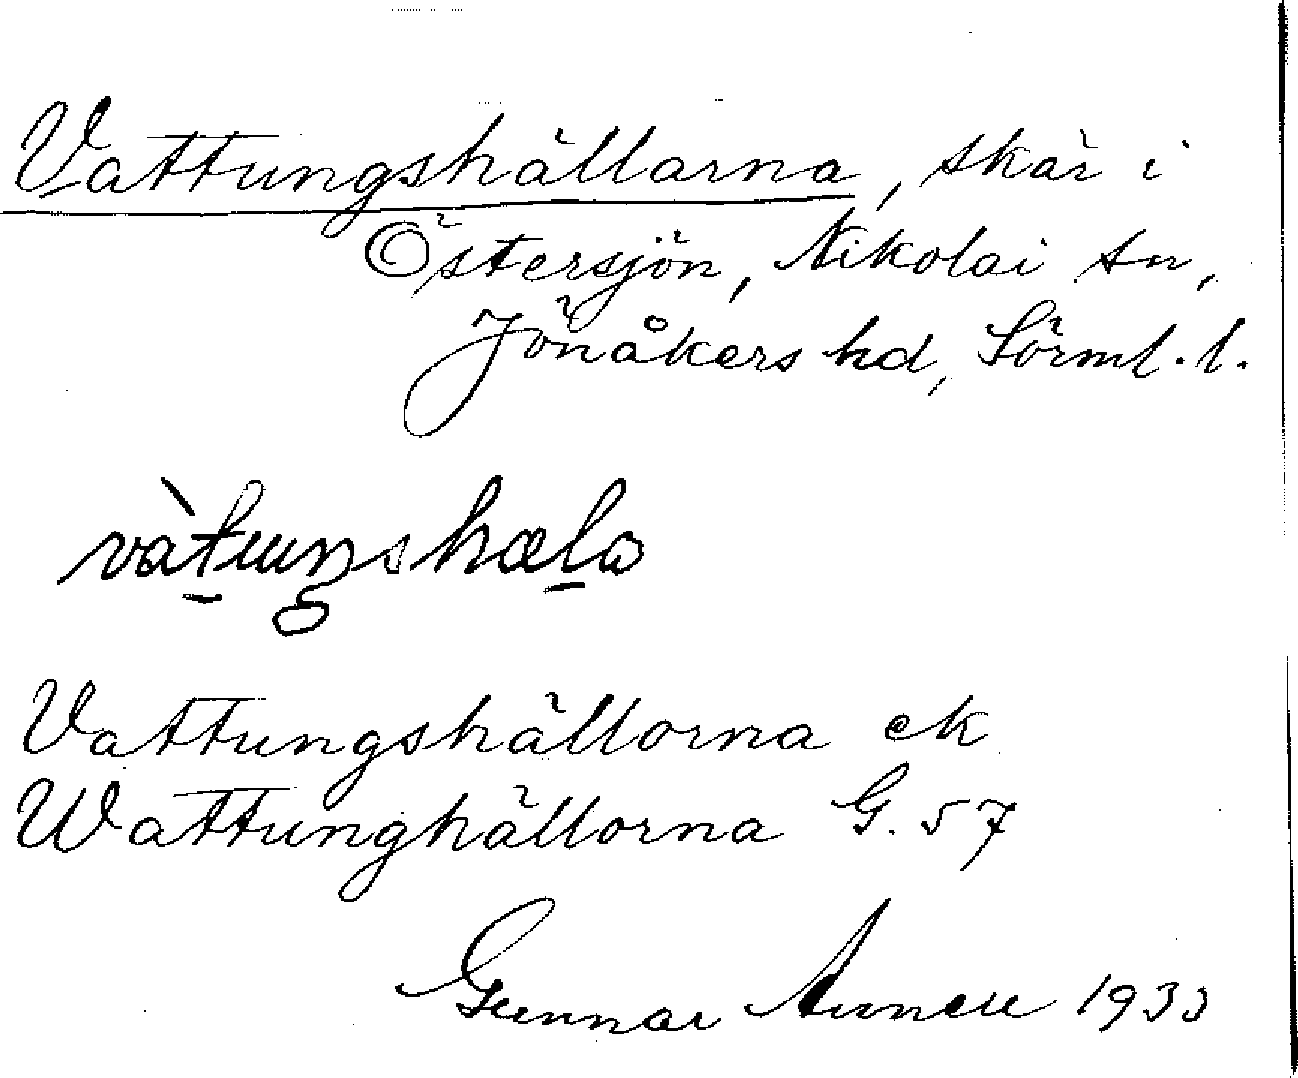 Vattungshällarna, skär i
Östersjön, Nikolai sn,
Jönåkers hd, Sörml. l.
vàt̠uŋshæl̠a
Vattungshällorna ek
Wattunghällorna G. 57
Gunnar 1933